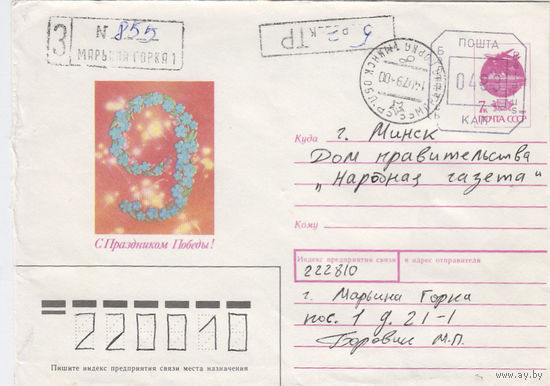 З
N 855
МАРЬИНА ГОРКА 1
ТР
ПОШТА
04
КАП
7 к
ПОЧТА СССР
9
С Праздником Победы!
Куда г. Минск
Дом правительства
"Народная газета"
Кому
Индекс предприятия связи и адрес отправителя
222810
г. Марьина Горка
пос. 1 д. 21-1
Боровик М.П.
220010
Пишите индекс предприятия связи места назначения
www.ay.by